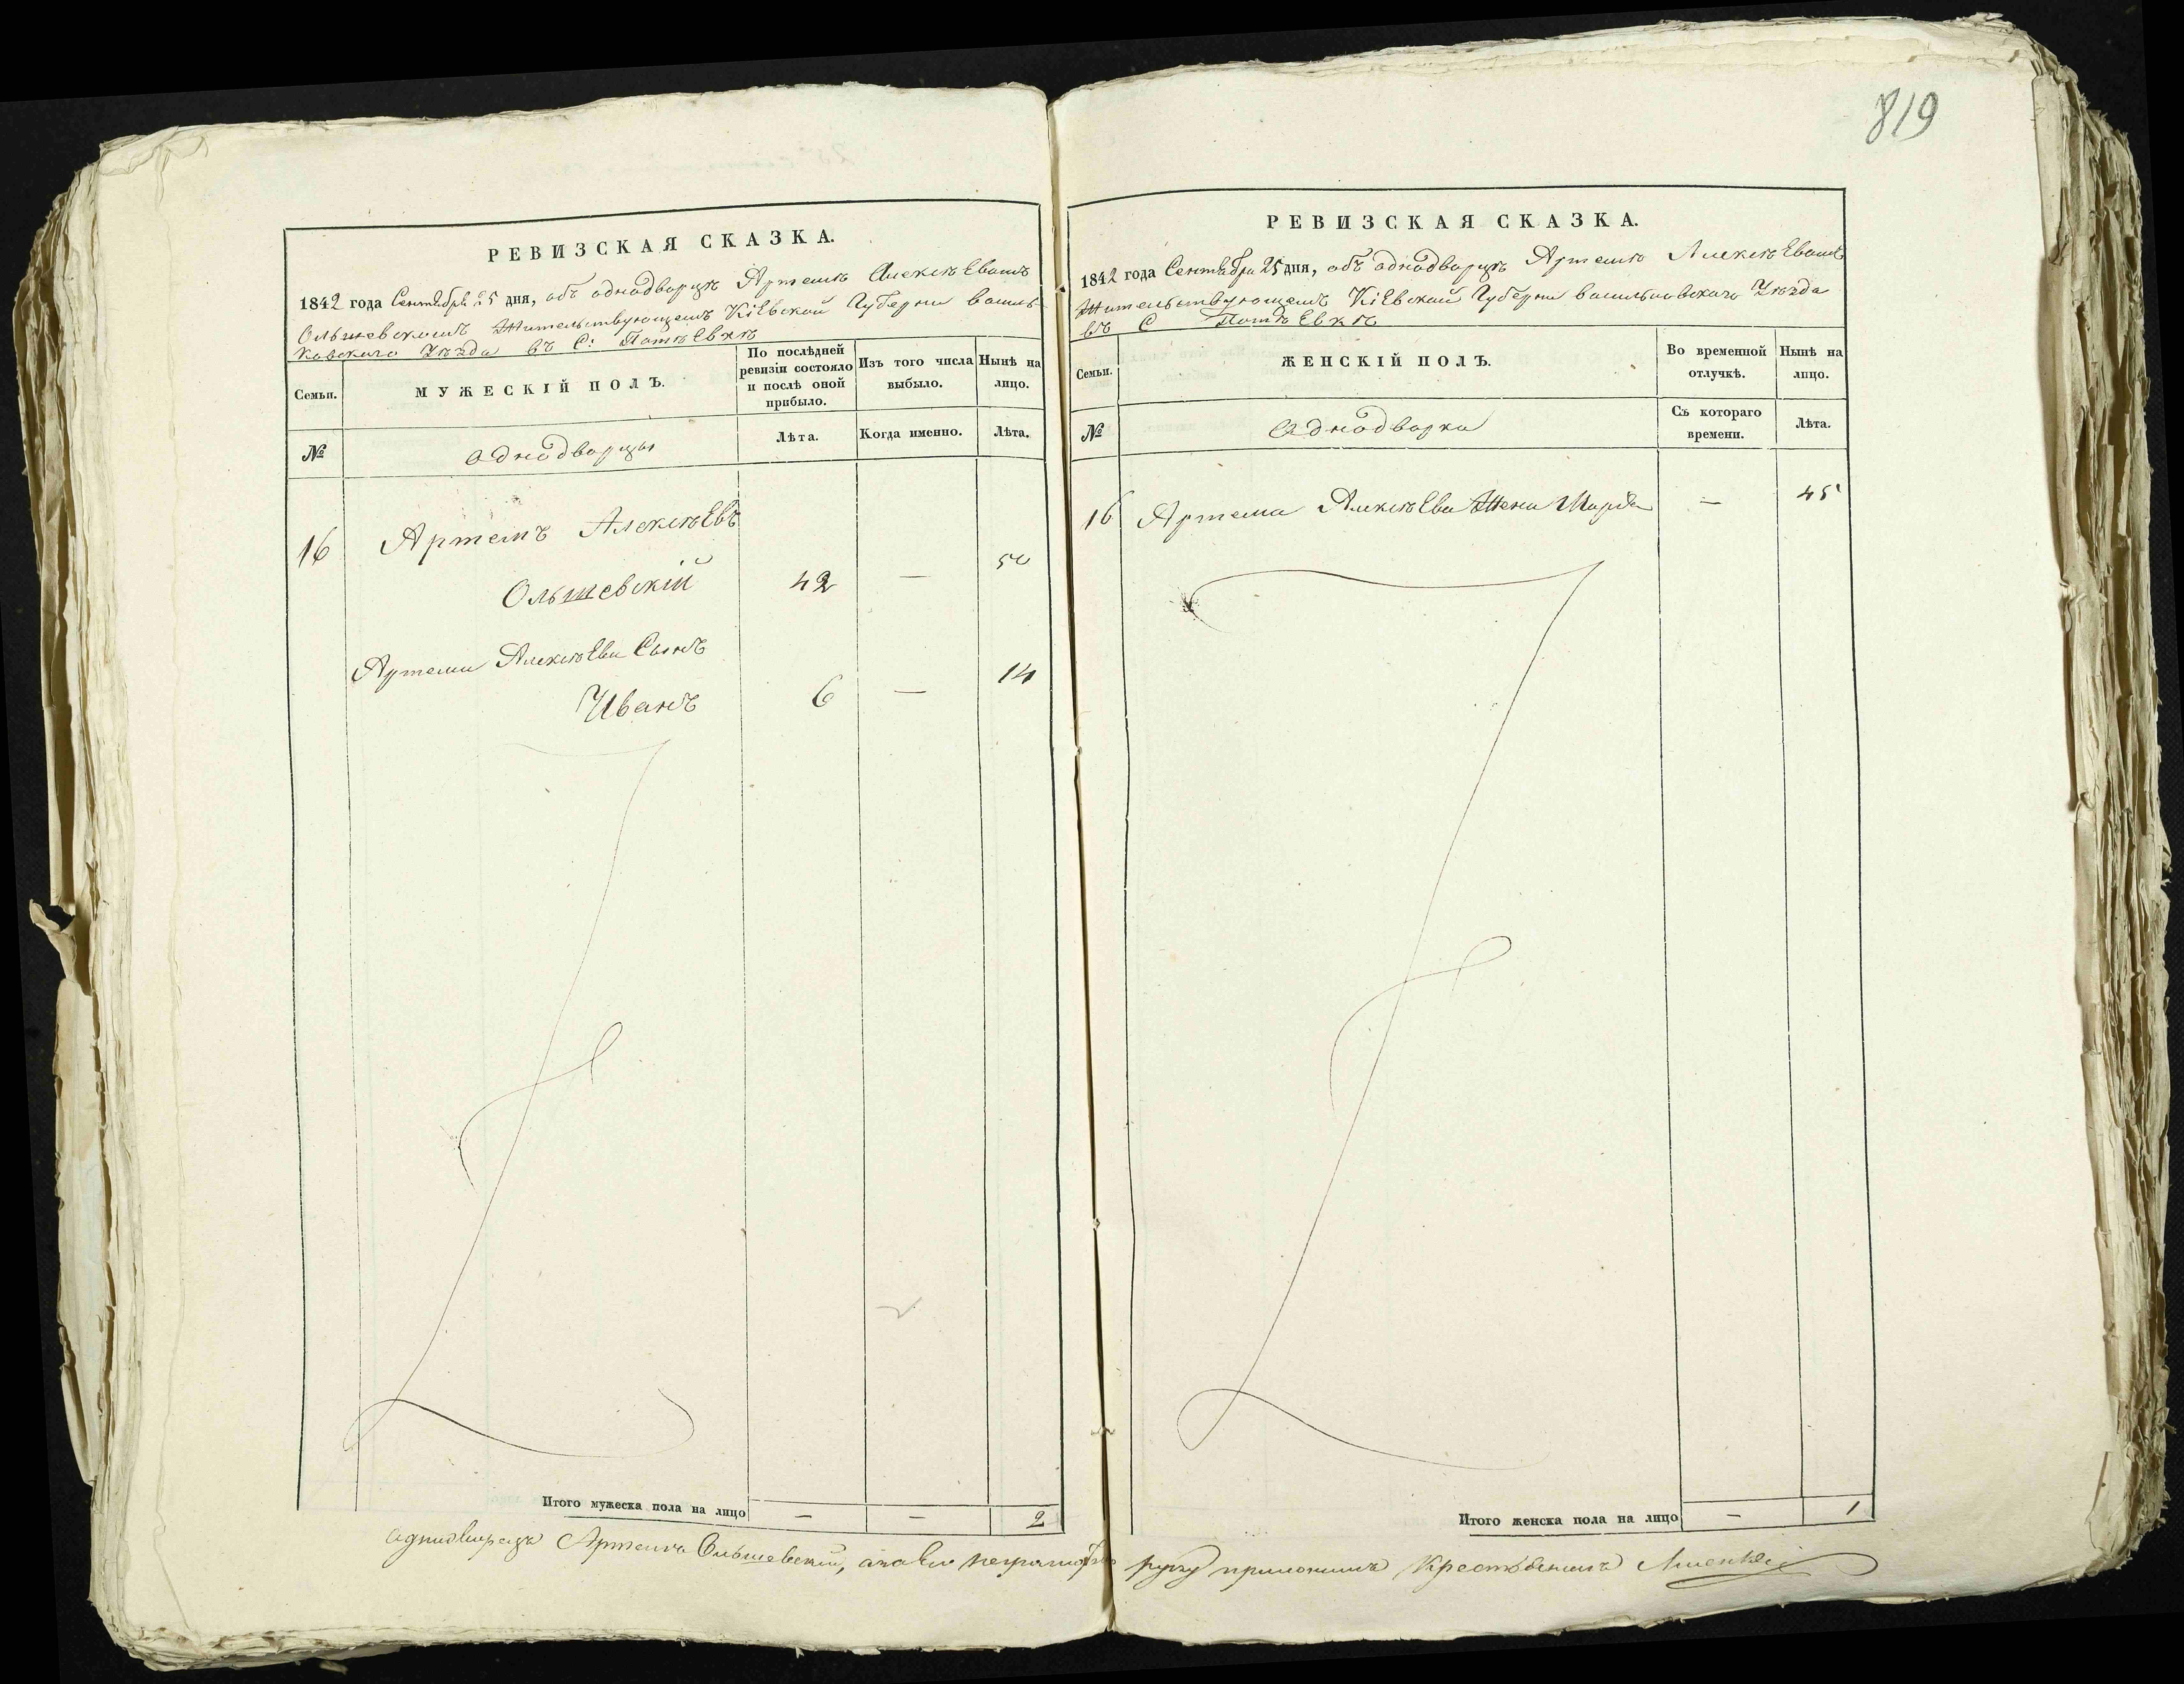 819
РЕВИЗСКАЯ СКАЗКА.
1842 года Сентября 25 дня, объ однодворцѣ Артемѣ Алексѣевомъ
Ольшевскомъ Жительствующемъ Кіевской Губерніи Василь-
ковскаго Уѣзда въ С:
Семьи.
МУЖЕСКІЙ ПОЛЪ.
По послѣдней
ревизіи состояло
и послѣ оной
прибыло.
Изъ того числа
выбыло.
Нынѣ на
лицо.
№
однодворцы
Лѣта.
Когда именно.
Лѣта.
16 Артемъ Алексѣевъ
Ольшевскій 42 — 50
Артема Алексѣева Сынъ
Иванъ 6 — 14
Итого мужеска пола на лицо — — 2
РЕВИЗСКАЯ СКАЗКА.
1842 года Сентября 25 дня, объ однодворцѣ Артемѣ Алексѣевомъ
Жительствующемъ Кіевской Губерніи Васильковскаго Уѣзда
въ С
Семьи.
ЖЕНСКІЙ ПОЛЪ.
Во временной
отлучкѣ.
Нынѣ на
лицо.
№
однодворки
Съ котораго
времени.
Лѣта.
16 Артема Алексѣева Жена Марія — 45
Итого женска пола на лицо — 1
однодворецъ Артемъ Ольшевскій, а за его неграмотно руку приложилъ